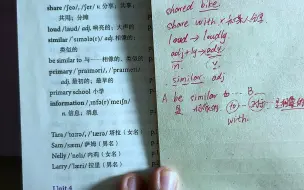 share /ʃeə/, /ʃer/ v. 分享，共享；
共用；分摊
loud /laʊd/ adj. 响亮的；大声的
similar /'sɪmələ(r)/ adj. 相像的；
类似的
be similar to 与……相像的、类似的
primary /'praɪməri/, /'praɪmeri/
adj. 最初的，最早的
primary school 小学
information /ˌɪnfə(r)'meɪʃn/
n. 信息；消息
Tara /'tɑːrə/, /'tærə/ 塔拉（女名）
Sam /sæm/ 萨姆（男名）
Nelly /'neli/ 内莉（女名）
Larry /'læri/ 拉里（男名）
Unit 4
shared bike
share with
loud → loudly
adj + ly → adv
similar adj
A be similar to - B
with